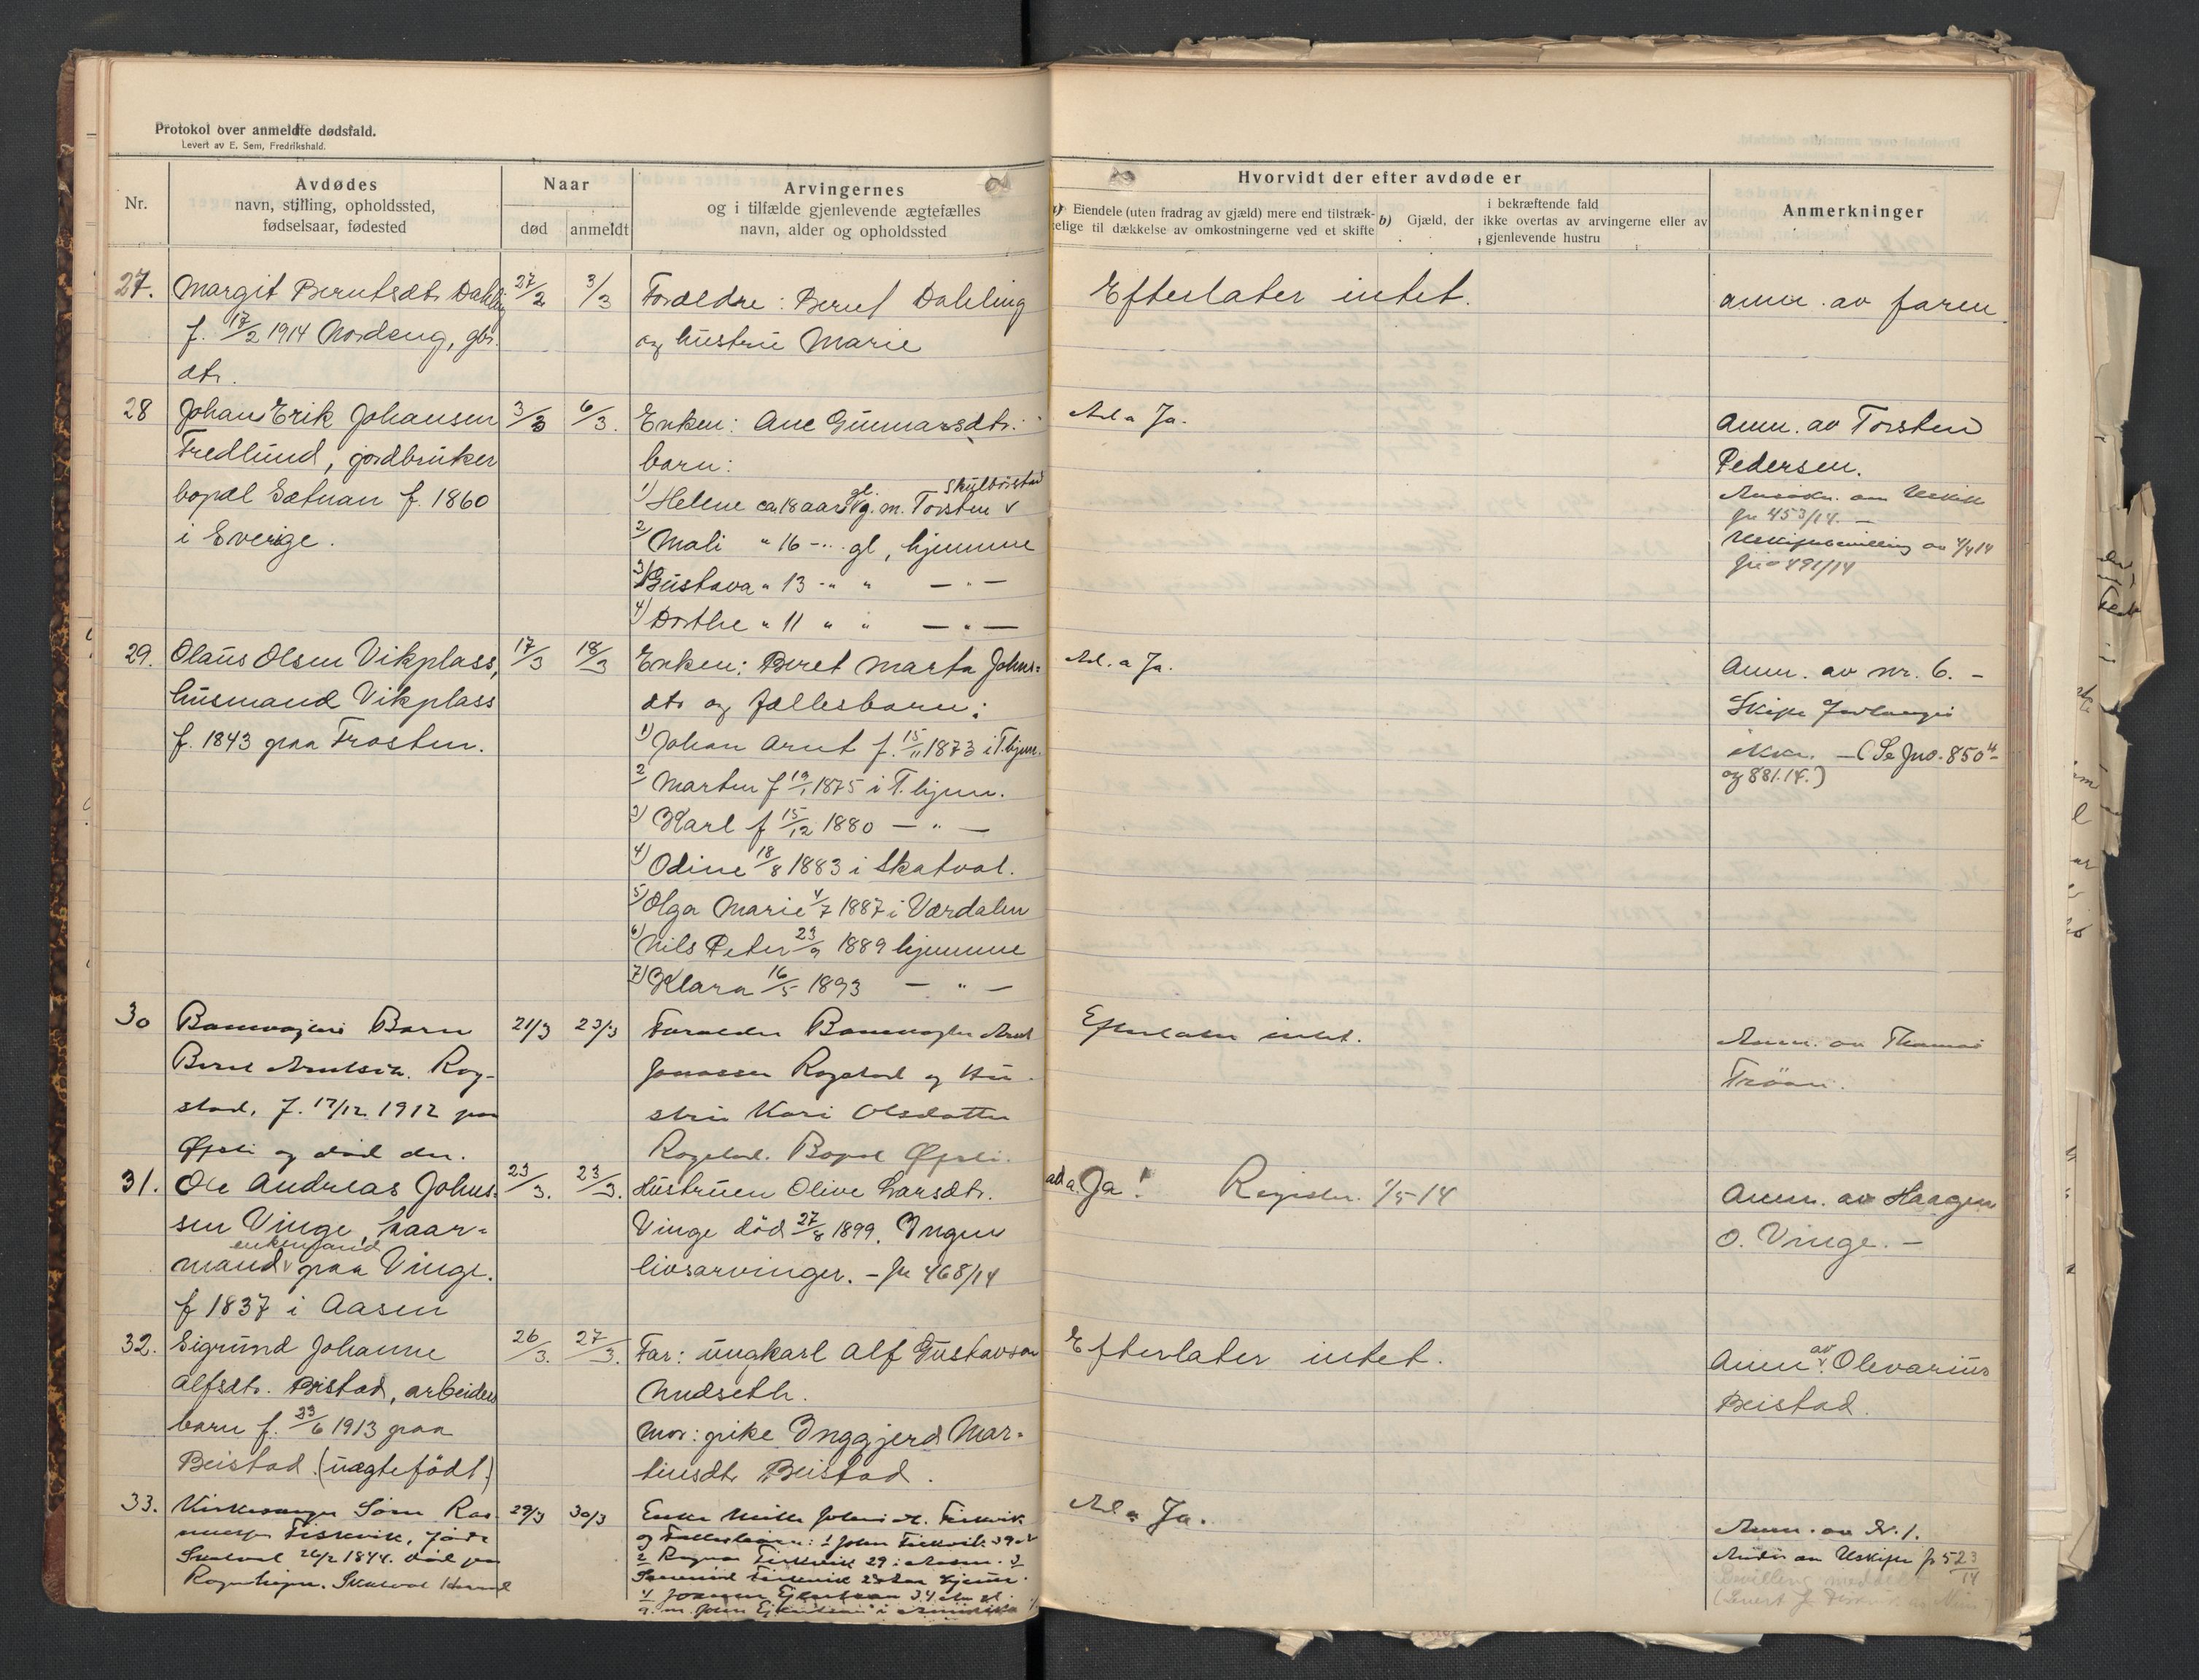 Protokol over anmeldte dødsfald.
Levert av E. Sem, Fredrikshald.
Nr.
Avdødes
navn, stilling, opholdssted,
fødselsaar, fødested
Naar
død
anmeldt
Arvingernes
og i tilfælde gjenlevende ægtefælles
navn, alder og opholdssted
Hvorvidt der efter avdøde er
a) Eiendele (uten fradrag av gjæld) mere end tilstræk-
kelige til dækkelse av omkostningerne ved et skifte
i bekræftende fald
b) Gjæld, der ikke overtas av arvingerne eller av
gjenlevende hustru
Anmerkninger
27.
Margit Berntsdtr. Dahling
f. 17/2 1914 Nordeng, gbr.
dtr.
27/2
3/3
Forældre: Bernt Dahling
og hustru Marie
Efterlater intet.
anm. av faren.
28
Johan Erik Johansen
Fredlund, gardbruker
bopæl Sætnan f. 1860
i Sverige.
3/3
6/3.
Enken: Ane Gunnarsdtr.
barn:
1) Helene ca. 18 aar gl. g. m. Torsten Skulbørstad
2) Mali " 16 -"- gl, hjemme
3) Gustava " 13 -" " — " —
4) Dorthe " 11 " " — " —
Ad a Ja.
Anm. av Torsten
Pedersen.
Ansøkn. om Uskifte
jr 453/14. —
Uskiftebevilling av 4/4 14
jno 491/14
29.
Olaus Olsen Vikplass,
husmand Vikplass
f. 1843 paa Frosten.
17/3
18/3
Enken: Beret Marta Johns=
dtr og fællesbarn:
1) Johan Arnt f. 15/11 1873 i T. hjem.
2) Marten f 19/1 1875 i T. hjem.
3) Karl f 15/12 1880 — " —
4) Odine 18/8 1883 i Skatval.
5) Olga Marie 4/7 1887 i Værdalen
6) Nils Peter 23/9 1889 hjemme
7) Klara 16/5 1893 — " —
Ad. a Ja.
Anm. av nr. 6. -
Skifte forlanges
ikke. — (Se Jno. 850
og 881.14.)
30
Banevogters Barn
Berit Arntsdtr. Rog-
stad, f. 17/12 1912 paa
Øfsti og død der.
21/3
23/3
Foreldre Banevogter Arnt
Jonassen Rogstad og Hu-
stru Kari Olsdatter
Rogstad. Bopæl Øfsti.
Efterlater intet.
Anm. av Thomas
Trøan.
31.
Ole Andreas Johns-
sen Vinge, kaar=
mand enkemand paa Vinge.
f 1837 i Aasen
23/3.
23/3.
Hustruen Olive Larsdtr.
Vinge död 27/8 1899. Ingen
livsarvinger. - jr 468/14
ad a. Ja! Registr. 1/5-14
Anm. av Haagen
O. Vinge. —
32.
Sigrund Johanne
Alfsdtr. Beistad, arbeiders
barn f. 23/6 1913 paa
Beistad. (uægtefödt.)
26/3.
27/3.
Far: ungkarl Alf Gustavson
Nudseth.
Mor: pike Inggjerd Mar-
tinsdtr Beistad.
Efterlater intet.
Anm. av Olevarius
Beistad.
33.
Kirkesanger Sören Ras-
mussen Fiskvik, född
Skatval 26/2 1844. död paa
Skatval
29/3
30/3
Enke Fiskvik
og Fællesbarn: 1 John Fiskvik 39
2 Ragnar Fiskvik 29 i Aasen. 3
Fiskvik hjem.
4 34
g. m. John i Amerika
Ad a Ja.
Anm. av N. 1.
Uskifte jr 523/14
Bevilling meddelt